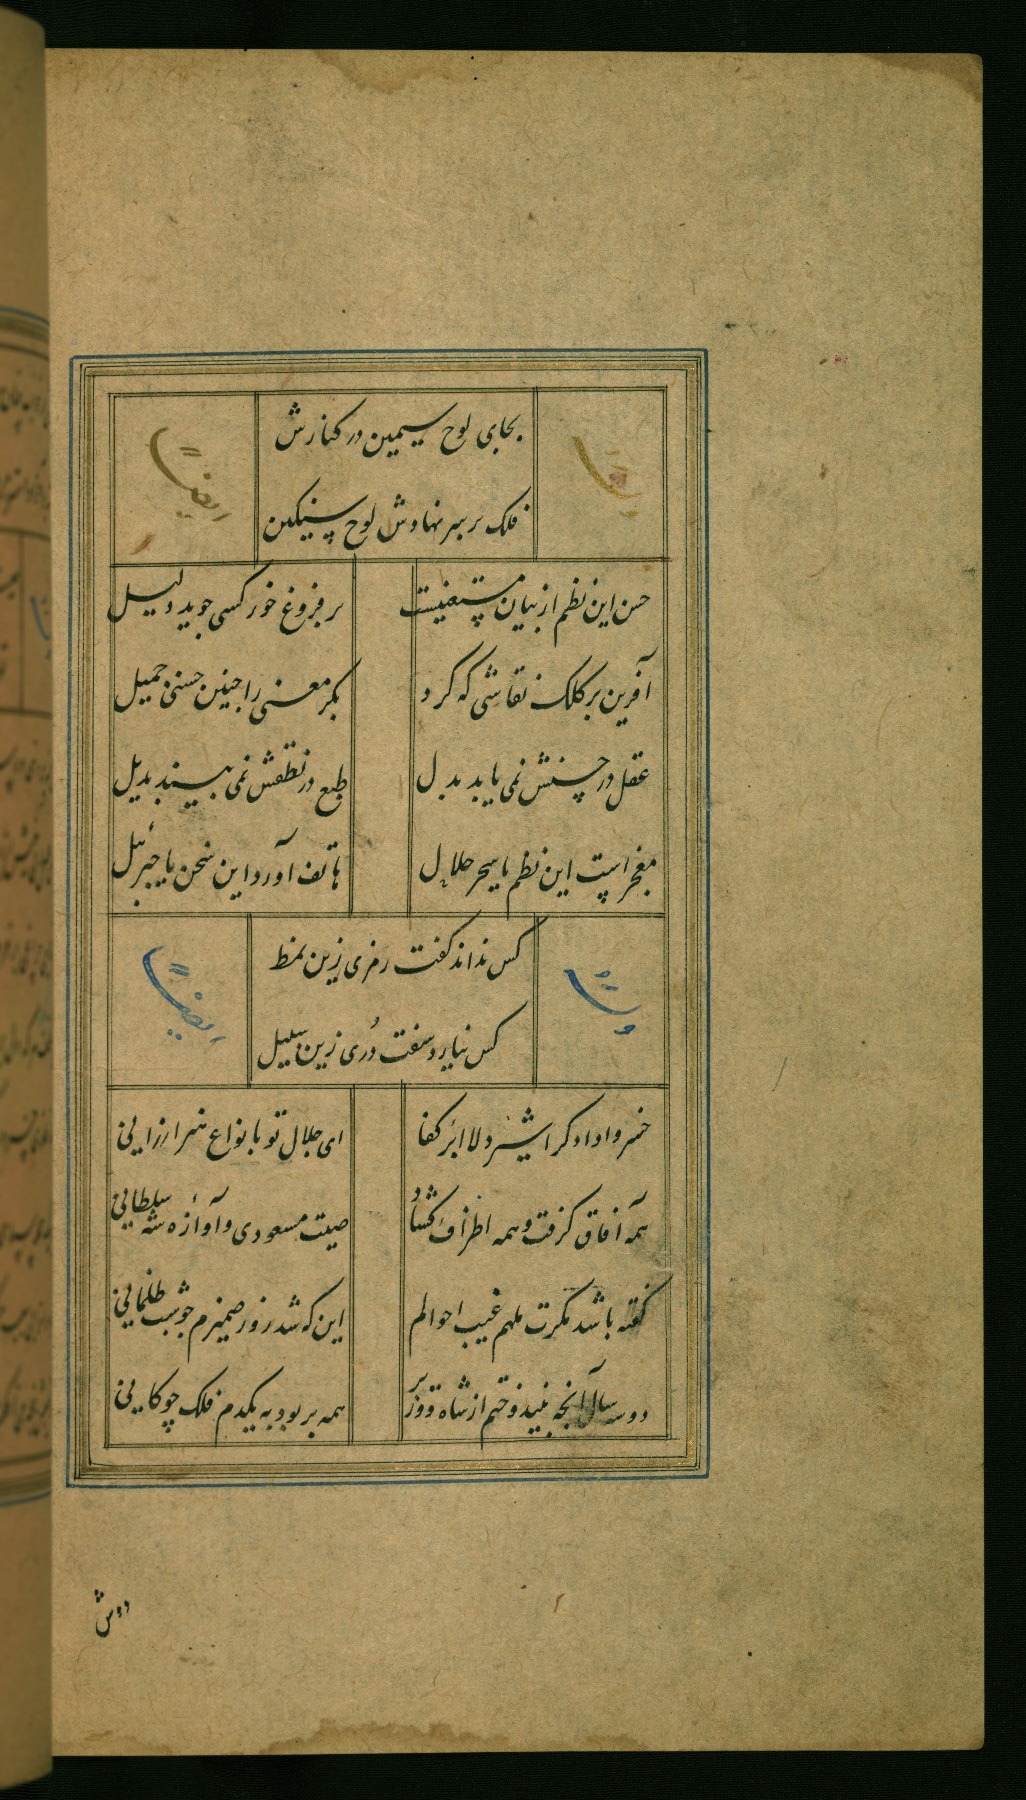 بجای لوح سیمین در کنارش
فلک بر سر نهادش لوح سنگین
وله
ایضا
حسن این نظم از بیان مستغنیست
بر فروغ خور کسی جوید دلیل
آفرین بر کلک نقاشی که کرد
بکر معنی را چنین حسنی جمیل
عقل در حسنش نمی یابد بدل
طبع در نطقش نمی بیند بدیل
معجز است این نظم یا سحر حلال
هاتف آورد این سخن یا جبرئیل
کس نداند گفت رمزی زین نمط
کس نیارد سفت دُری زین سبیل
وله
ایضا
خسروا دادگرا شیردلا ابر کفا
ای جلال تو بانواع هنر ارزانی
همه آفاق گرفت و همه اطراف گشاد
صیت مسعودی و آوازه شه سلطانی
گفته باشد مگرت ملهم غیب احوالم
این که شد روز ضمیرم چو شب ظلمانی
دو سه سال آنچه بیندوختم از شاه و وزیر
همه بربود به یکدم فلک چوکانی
دوش